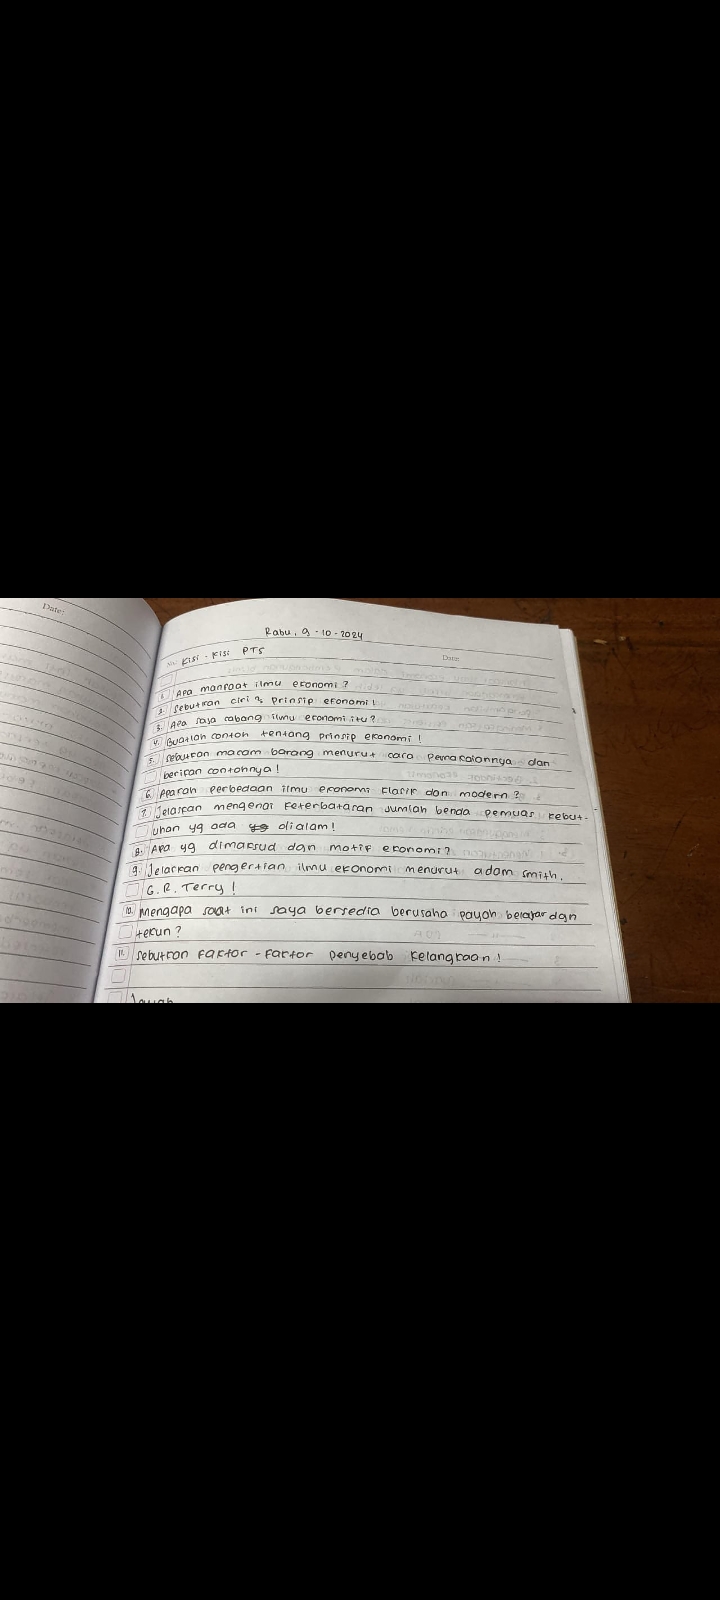 Date:
Rabu, 9-10-2024
No: Kisi-Kisi PTS Date:
1. Apa manfaat ilmu ekonomi?
2. Sebutkan ciri2 prinsip ekonomi!
3. Apa saja cabang ilmu ekonomi itu?
4. Buatlah contoh tentang prinsip ekonomi!
5. Sebutkan macam barang menurut cara pemakaiannya dan
berikan contohnya!
6. Apakah perbedaan ilmu ekonomi klasik dan modern?
7. Jelaskan mengenai keterbatasan jumlah benda pemuas kebut-
uhan yg ada dialam!
8. Apa yg dimaksud dgn motif ekonomi?
9. Jelaskan pengertian ilmu ekonomi menurut adam smith.
G.R. Terry!
10. Mengapa saat ini saya bersedia berusaha payah belajar dgn
tekun?
11. Sebutkan faktor-faktor penyebab kelangkaan!